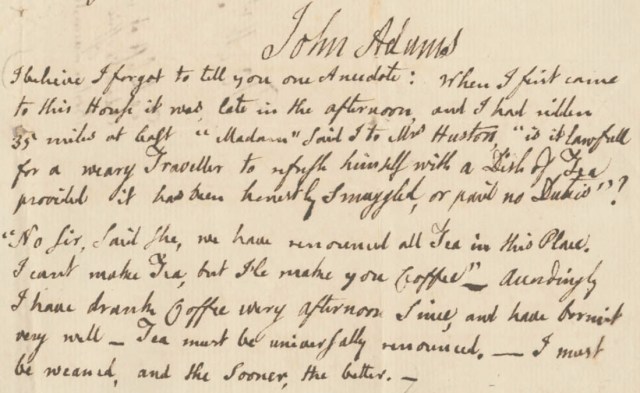 John Adams
I believe I forgot to tell you one Anecdote: When I first came
to this House it was late in the afternoon, and I had ridden
35 miles at least "Madam" said I to Mrs Huston, "is it lawfull
for a weary Traveller to refresh himself with a Dish of Tea
provided it has been honestly smuggled, or paid no Duties"?
"No sir, said she, we have renounced all Tea in this Place.
I cant make Tea, but I'le make you Coffee" — Accordingly
I have drank Coffee every afternoon since, and have borne it
very well — Tea must be universally renounced. — I must
be weaned, and the sooner, the better. —